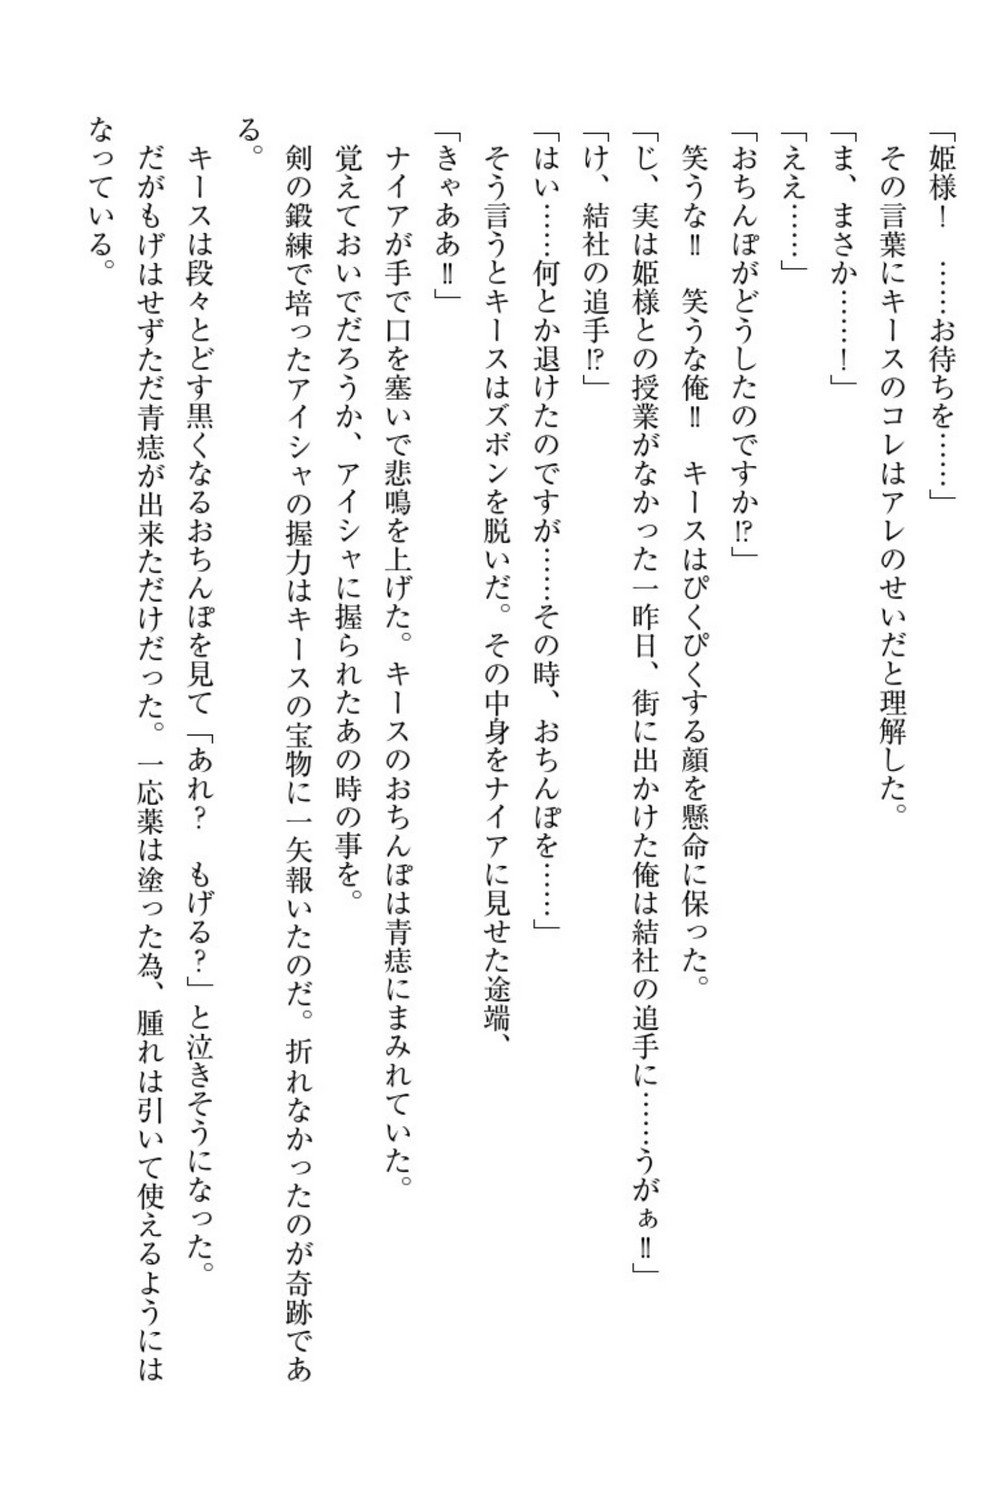 「姫様！　……お待ちを……」
　その言葉にキースのコレはアレのせいだと理解した。
「ま、まさか……！」
「ええ……」
「おちんぽがどうしたのですか⁉」
　笑うな‼　笑うな俺‼　キースはぴくぴくする顔を懸命に保った。
「じ、実は姫様との授業がなかった一昨日、街に出かけた俺は結社の追手に……うがぁ‼」
「け、結社の追手⁉」
「はい……何とか退けたのですが……その時、おちんぽを……」
　そう言うとキースはズボンを脱いだ。その中身をナイアに見せた途端、
「きゃああ‼」
　ナイアが手で口を塞いで悲鳴を上げた。キースのおちんぽは青痣にまみれていた。
　覚えておいでだろうか、アイシャに握られたあの時の事を。
　剣の鍛練で培ったアイシャの握力はキースの宝物に一矢報いたのだ。折れなかったのが奇跡であ
る。
　キースは段々とどす黒くなるおちんぽを見て「あれ？　もげる？」と泣きそうになった。
　だがもげはせずただ青痣が出来ただけだった。一応薬は塗った為、腫れは引いて使えるようには
なっている。